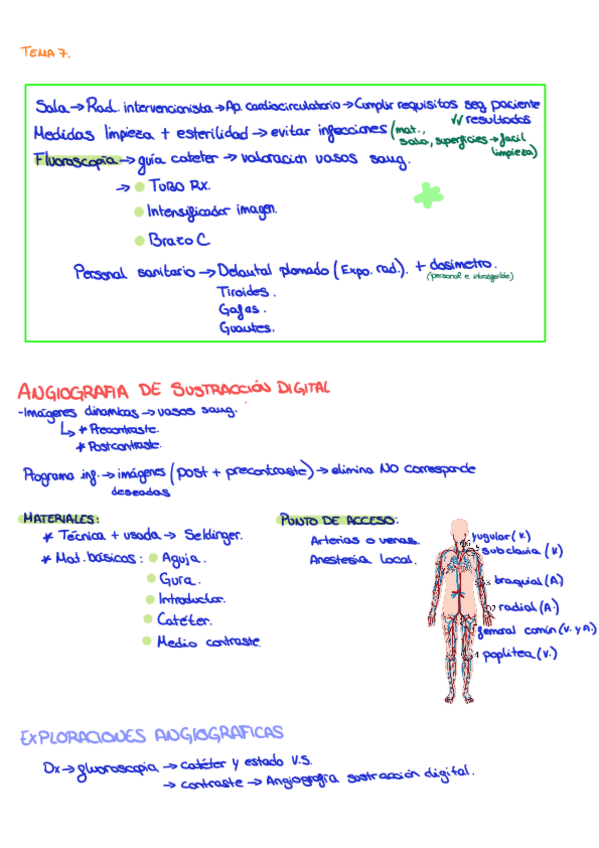 TEMA 7.
Sala → Rad. intervencionista → Ap. cardiocirculatorio → Cumplir requisitos seg. paciente
√√ resultados
Medidas limpieza + esterilidad → evitar infecciones (mat.,
sala, superficies → facil
limpieza)
Fluoroscopia → guía cateter → valoración vasos sang.
→ TUBO RX.
Intensificador imagen.
Brazo C
Personal sanitario → Delantal plomado (Expo. rad.). + dosímetro.
(personal e intransferible)
Tiroides.
Gafas.
Guantes.
ANGIOGRAFIA DE SUSTRACCIÓN DIGITAL
-Imágenes dinamicas → vasos sang.
↳ * Precontraste.
* Postcontraste.
Programa ing. → imágenes (post + precontraste) → elimina NO corresponde
deseadas
MATERIALES:
* Técnica + usada → Seldinger.
* Mat. básicos: Aguja.
Guia.
Introductor.
Catéter.
Medio contraste.
PUNTO DE ACCESO:
Arterias o venas.
Anestesia local.
yugular (V.)
subclavia (V)
braquial (A)
radial (A.)
femoral común (V. y A.)
poplítea (V.)
EXPLORACIONES ANGIOGRAFICAS
Dx → gluoroscopia → catéter y estado V.S.
→ contraste → Angiografía sustracción digital.